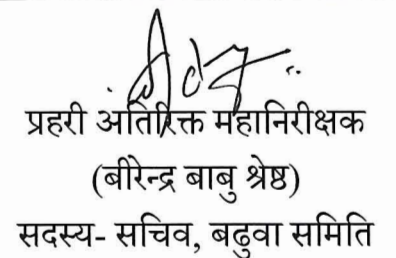 प्रहरी अतिरिक्त महानिरीक्षक
(बीरेन्द्र बाबु श्रेष्ठ)
सदस्य- सचिव, बढुवा समिति